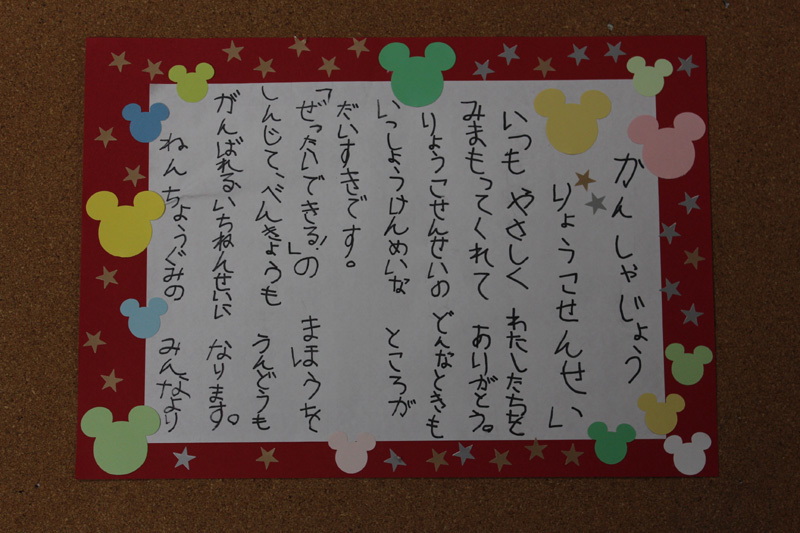 かんしゃじょう
りょうこせんせい
いつも やさしく わたしたちを
みまもってくれて ありがとう。
りょうこせんせいの どんなときも
いっしょうけんめいな ところが
だいすきです。
「ぜったいできる!」の まほうを
しんじて、べんきょうも うんどうも
がんばれる、いちねんせいに なります。
ねんちょうぐみの みんなより